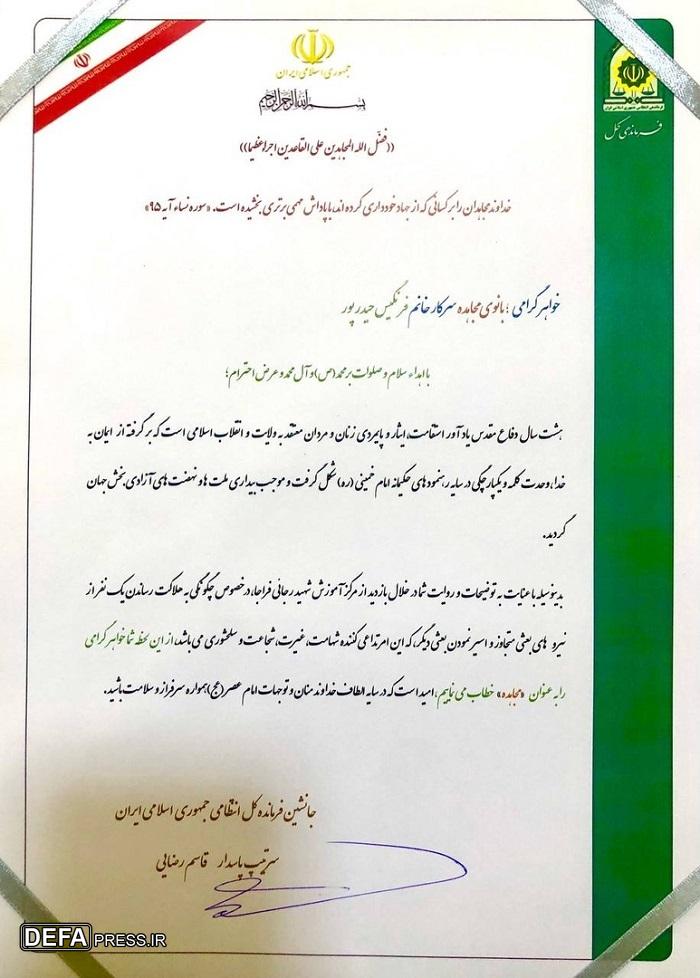 جمهوری اسلامی ایران
بسم الله الرحمن الرحیم
فرماندهی کل
((فضّل الله المجاهدین علی القاعدین اجرا عظیما))
خداوند مجاهدان را بر کسانی که از جهاد خودداری کرده اند، با پاداش مهمی برتری بخشیده است. «سوره نساء آیه ۹۵»
خواهر گرامی ؛ بانوی مجاهده سرکار خانم فرنگیس حیدرپور
با اهداء سلام و صلوات بر محمد (ص) و آل محمد و عرض احترام؛
هشت سال دفاع مقدس یادآور استقامت، ایثار و پایمردی زنان و مردان معتقد به ولایت و انقلاب اسلامی است که برگرفته از ایمان به
خدا، وحدت کلمه و یکپارچگی در سایه رهنمودهای حکیمانه امام خمینی (ره) شکل گرفت و موجب بیداری ملت ها و نهضت های آزادی بخش جهان
گردید.
بدینوسیله با عنایت به توضیحات و روایت شما در خلال بازدید از مرکز آموزش شهید رجائی فراجا، در خصوص چگونگی به هلاکت رساندن یک نفر از
نیرو های بعثی متجاوز و اسیر نمودن بعثی دیگر، که این امر تداعی کننده شهامت، غیرت، شجاعت و سلحشوری می باشد، از این لحظه شما خواهر گرامی
را به عنوان «مجاهده» خطاب می نماییم، امید است که در سایه الطاف خداوند منان و توجهات امام عصر (عج) همواره سرفراز و سلامت باشید.
جانشین فرمانده کل انتظامی جمهوری اسلامی ایران
سرتیپ پاسدار قاسم رضایی
DEFAPRESS.IR